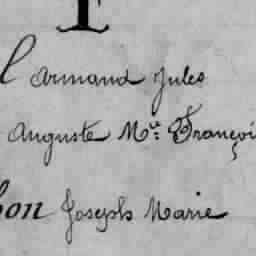 l Armand Jules
Auguste Mie: Françoi
bon Joseph Marie